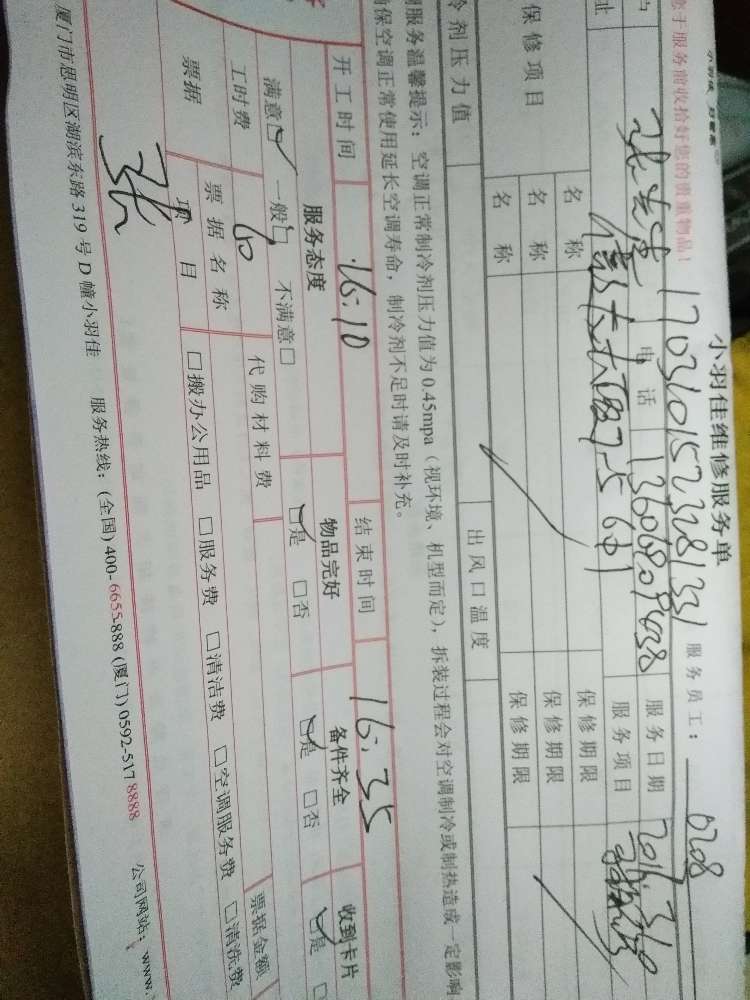 小羽佳维修服务单
您于服务前收拾好您的贵重物品！
1703101523281331 服务员工： 0208
电话 13606909838 服务日期
址 服务项目
保修项目 名称 保修期限
名称 保修期限
名称 保修期限
冷剂压力值 出风口温度
服务温馨提示：空调正常制冷剂压力值为0.45mpa（视环境、机型而定），拆装过程会对空调制冷或制热造成一定影响
保空调正常使用延长空调寿命，制冷剂不足时请及时补充。
开工时间 16:10 结束时间 16:35
服务态度 物品完好 备件齐全 收到卡片
满意☑ 一般□ 不满意□ ☑是 □否 ☑是 □否 ☑是 □
工时费 60 代购材料费 票据金额
票据 票据名称
项目 □搬办公用品 □服务费 □清洁费 □空调服务费 □清洗费
张
厦门市思明区湖滨东路319号D幢小羽佳 服务热线：(全国)400-6655-888 (厦门)0592-517 8888 公司网站：www.